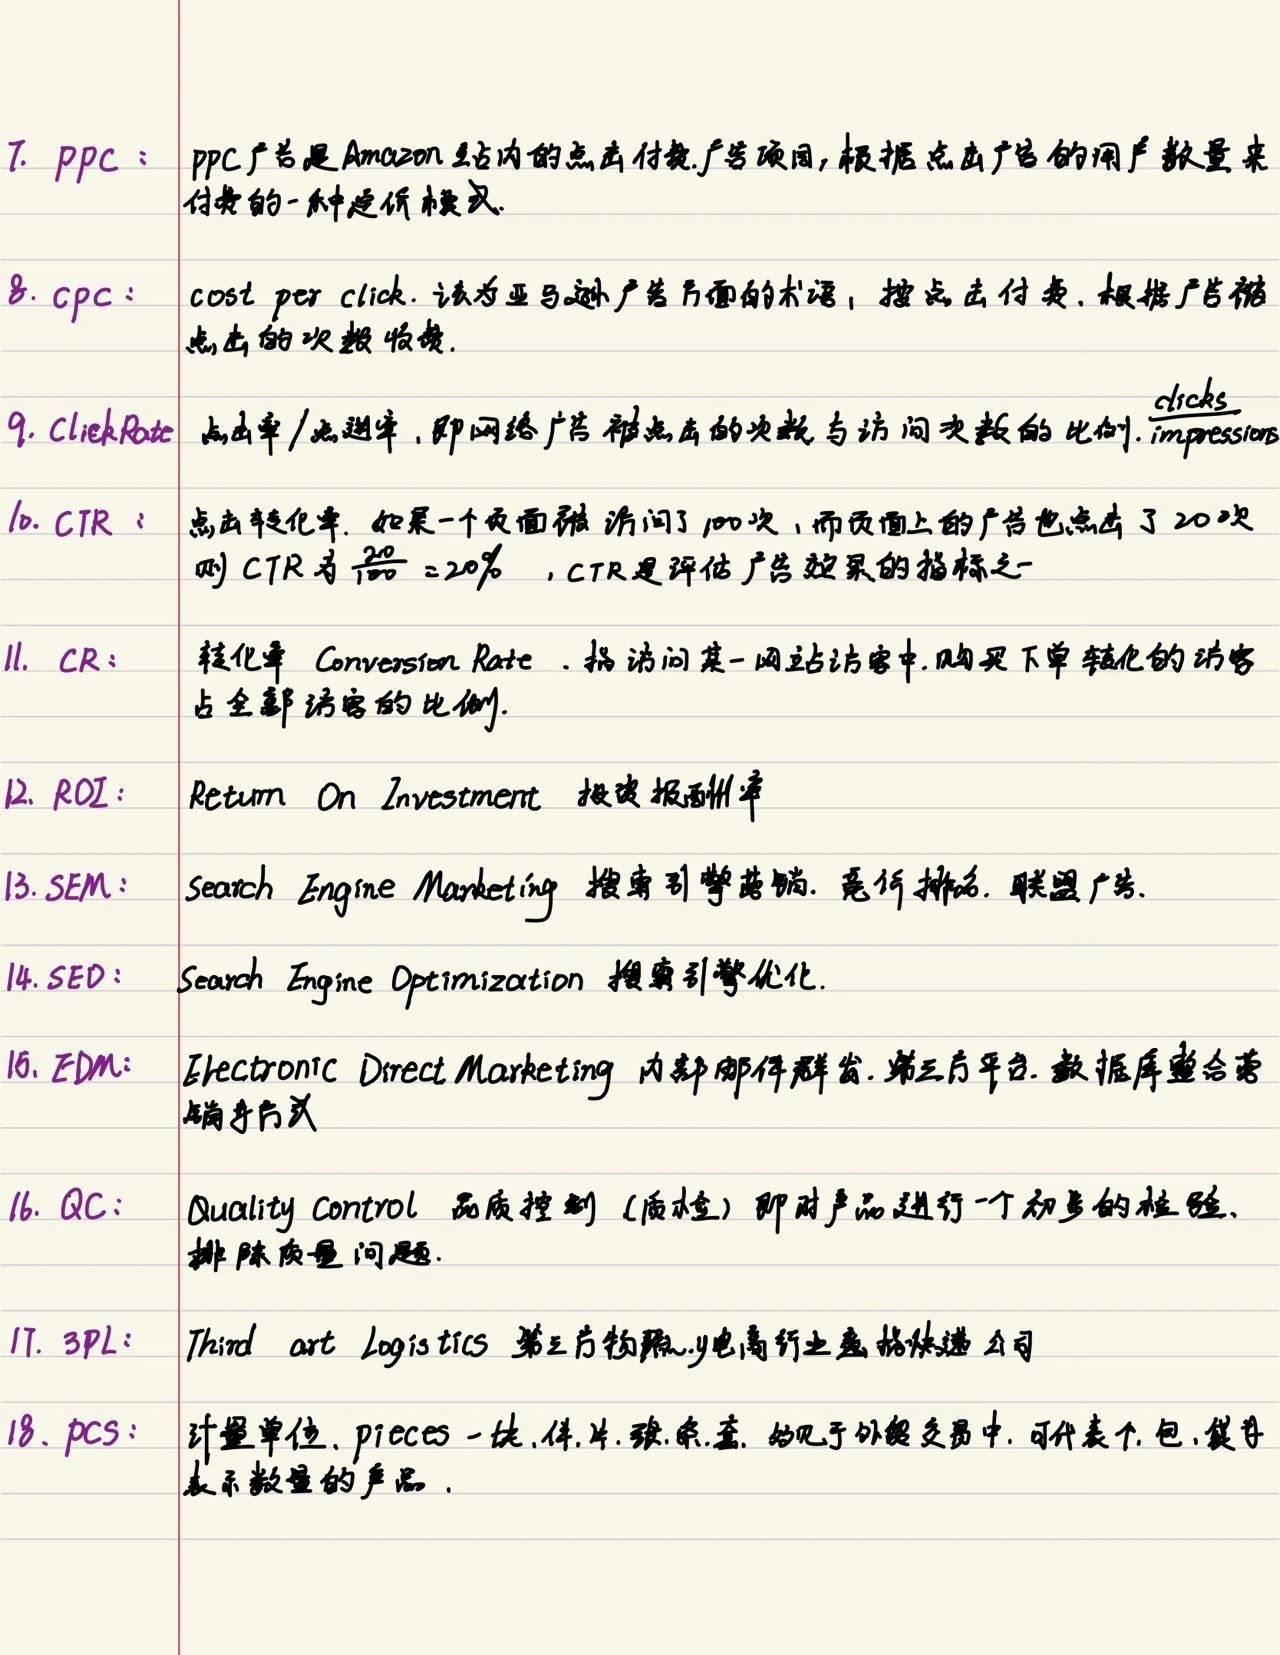 7. PPC: PPC广告是Amazon站内的点击付费.广告项目,根据点击广告的用户数量来
付费的一种定价模式.
8. CPC: cost per click. 该为亚马逊广告方面的术语, 按点击付费. 根据广告被
点击的次数收费.
9. Click Rate 点击率/点进率, 即网络广告被点击的次数与访问次数的比例. clicks/impressions
10. CTR: 点击转化率. 如果一个页面被访问了100次, 而页面上的广告也点击了20次
则 CTR为 20/100 =20% , CTR是评估广告效果的指标之一
11. CR: 转化率 Conversion Rate. 指访问某一网站访客中.购买下单转化的访客
占全部访客的比例.
12. ROI: Return On Investment 投资报酬率
13. SEM: Search Engine Marketing 搜索引擎营销. 竞价排名. 联盟广告.
14. SEO: Search Engine Optimization 搜索引擎优化.
15. EDM: Electronic Direct Marketing 内部邮件群发. 第三方平台. 数据库整合营
销等方式
16. QC: Quality Control 品质控制 (质检) 即对产品进行一个初步的检验.
排除质量问题.
17. 3PL: Third art Logistics 第三方物流. 电商行业意指快递公司
18. PCS: 计量单位. pieces 一批.件.片.张.条.套. 的见于外贸交易中. 可代表个.包.袋等
表示数量的产品.